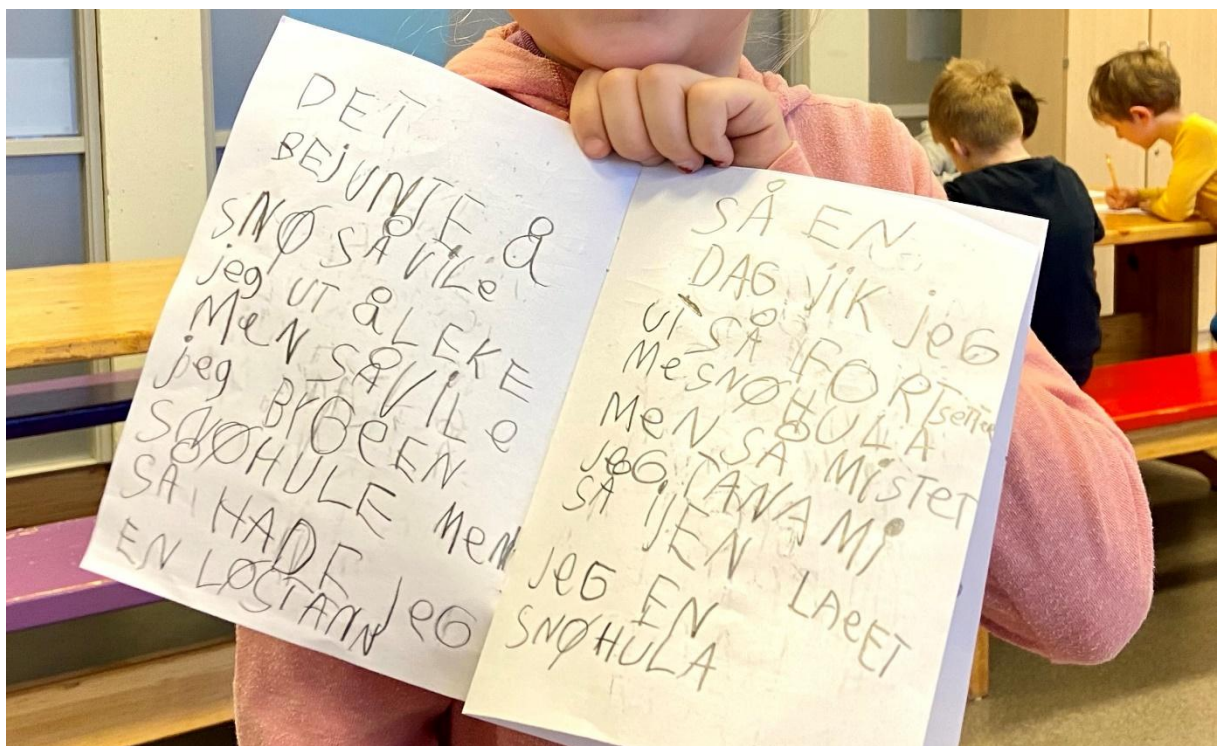 DET
BEJUNTE å
SNØ SÅ VILe
jeg UT å LEKE
MeN SÅ VILe
jeg BRØeEN
SNØHULE MeN
SÅ HADE jeG
EN LØSTANN
Å
SÅ EN
DAG jIK jeG
UT SÅ FORTsette
Me SNØHULA
MeN SÅ MiSTeT
jeG TANA Mi
SÅ IJEN LAeET
jeG EN
SNØHULA